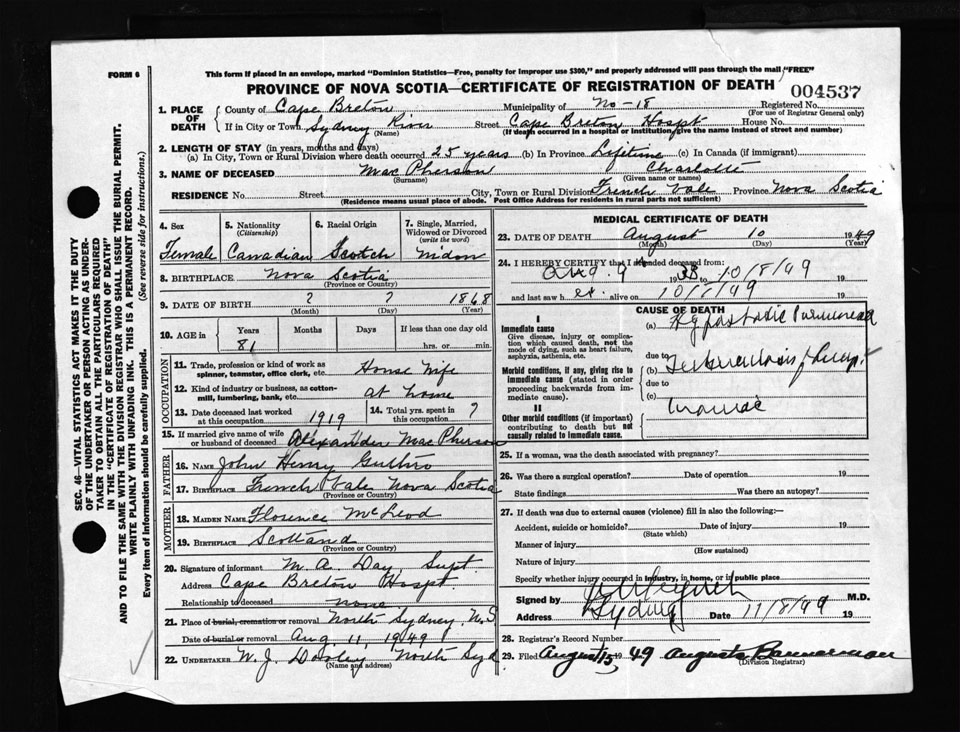 FORM 6
This form if placed in an envelope, marked "Dominion Statistics—Free, penalty for improper use $300," and properly addressed will pass through the mail "FREE"
PROVINCE OF NOVA SCOTIA—CERTIFICATE OF REGISTRATION OF DEATH 004537
1. PLACE OF DEATH
County of Cape Breton Municipality of No-18 Registered No.
(For use of Registrar General only)
If in City or Town Sydney River Street Cape Breton Hospt House No.
(Name) (If death occurred in a hospital or institution, give the name instead of street and number)
2. LENGTH OF STAY (in years, months and days)
(a) In City, Town or Rural Division where death occurred 25 years (b) In Province Lifetime (c) In Canada (if immigrant)
3. NAME OF DECEASED Mac Pherson Charlotte
(Surname) (Given name or names)
RESIDENCE No. Street City, Town or Rural Division French Vale Province Nova Scotia
(Residence means usual place of abode. Post Office Address for residents in rural parts not sufficient)
4. Sex 5. Nationality (Citizenship) 6. Racial Origin 7. Single, Married, Widowed or Divorced (write the word)
Female Canadian Scotch
8. BIRTHPLACE Nova Scotia
(Province or Country)
9. DATE OF BIRTH ? ? 1868
(Month) (Day) (Year)
10. AGE in Years Months Days If less than one day old
81 hrs. or min.
OCCUPATION
11. Trade, profession or kind of work as spinner, teamster, office clerk, etc. House Wife
12. Kind of industry or business, as cotton-mill, lumbering, bank, etc. at home
13. Date deceased last worked at this occupation 1919 14. Total yrs. spent in this occupation ?
15. If married give name of wife or husband of deceased Alexander Mac Pherson
FATHER
16. NAME John Henry Guthro
17. BIRTHPLACE French Vale Nova Scotia
MOTHER
18. MAIDEN NAME Florence McLeod
19. BIRTHPLACE Scotland
(Province or Country)
20. Signature of informant M. A. Day, Supt.
Address Cape Breton Hospt.
Relationship to deceased none
21. Place of burial, cremation or removal North Sydney, N.S
Date of burial or removal Aug 11, 1949
22. UNDERTAKER W. J. Dooley North Syd.
(Name and address)
MEDICAL CERTIFICATE OF DEATH
23. DATE OF DEATH August 10 1949
(Month) (Day) (Year)
24. I HEREBY CERTIFY that I attended deceased from:
10/8/49 19
and last saw h er. alive on 19
CAUSE OF DEATH
I
Immediate cause
Give disease, injury or complication which caused death, not the mode of dying, such as heart failure, asphyxia, asthenia, etc.
(a) Hypostatic Pneumonia
due to
Morbid conditions, if any, giving rise to immediate cause (stated in order proceeding backwards from immediate cause).
(b) Tuberculosis
due to
(c)
II
Other morbid conditions (if important) contributing to death but not causally related to immediate cause.
25. If a woman, was the death associated with pregnancy?
26. Was there a surgical operation? Date of operation 19
State findings Was there an autopsy?
27. If death was due to external causes (violence) fill in also the following:—
Accident, suicide or homicide? Date of injury 19
(State which)
Manner of injury
(How sustained)
Nature of injury
Specify whether injury occurred in industry, in home, or in public place
Signed by M.D.
Address Sydney Date 11/8/49 19
28. Registrar's Record Number
29. Filed August 15 1949 Augusta Bannerman
(Division Registrar)
SEC. 46—VITAL STATISTICS ACT MAKES IT THE DUTY
OF THE UNDERTAKER OR PERSON ACTING AS UNDER-
TAKER TO OBTAIN ALL THE PARTICULARS REQUIRED
IN THE "CERTIFICATE OF REGISTRATION OF DEATH"
AND TO FILE THE SAME WITH THE DIVISION REGISTRAR WHO SHALL ISSUE THE BURIAL PERMIT.
WRITE PLAINLY WITH UNFADING INK. THIS IS A PERMANENT RECORD.
Every item of Information should be carefully supplied. (See reverse side for instructions.)